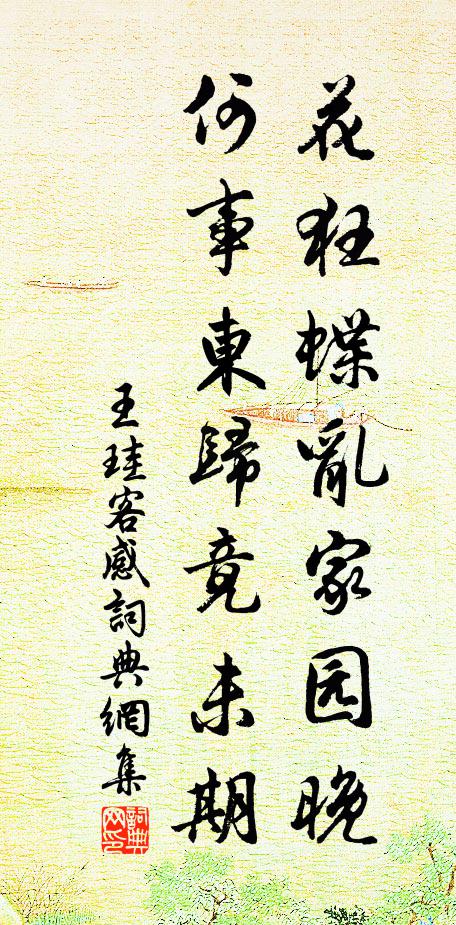 花狂蝶亂家园晚
何事東歸竟未期
王珪客感詞典網集
詞典网印